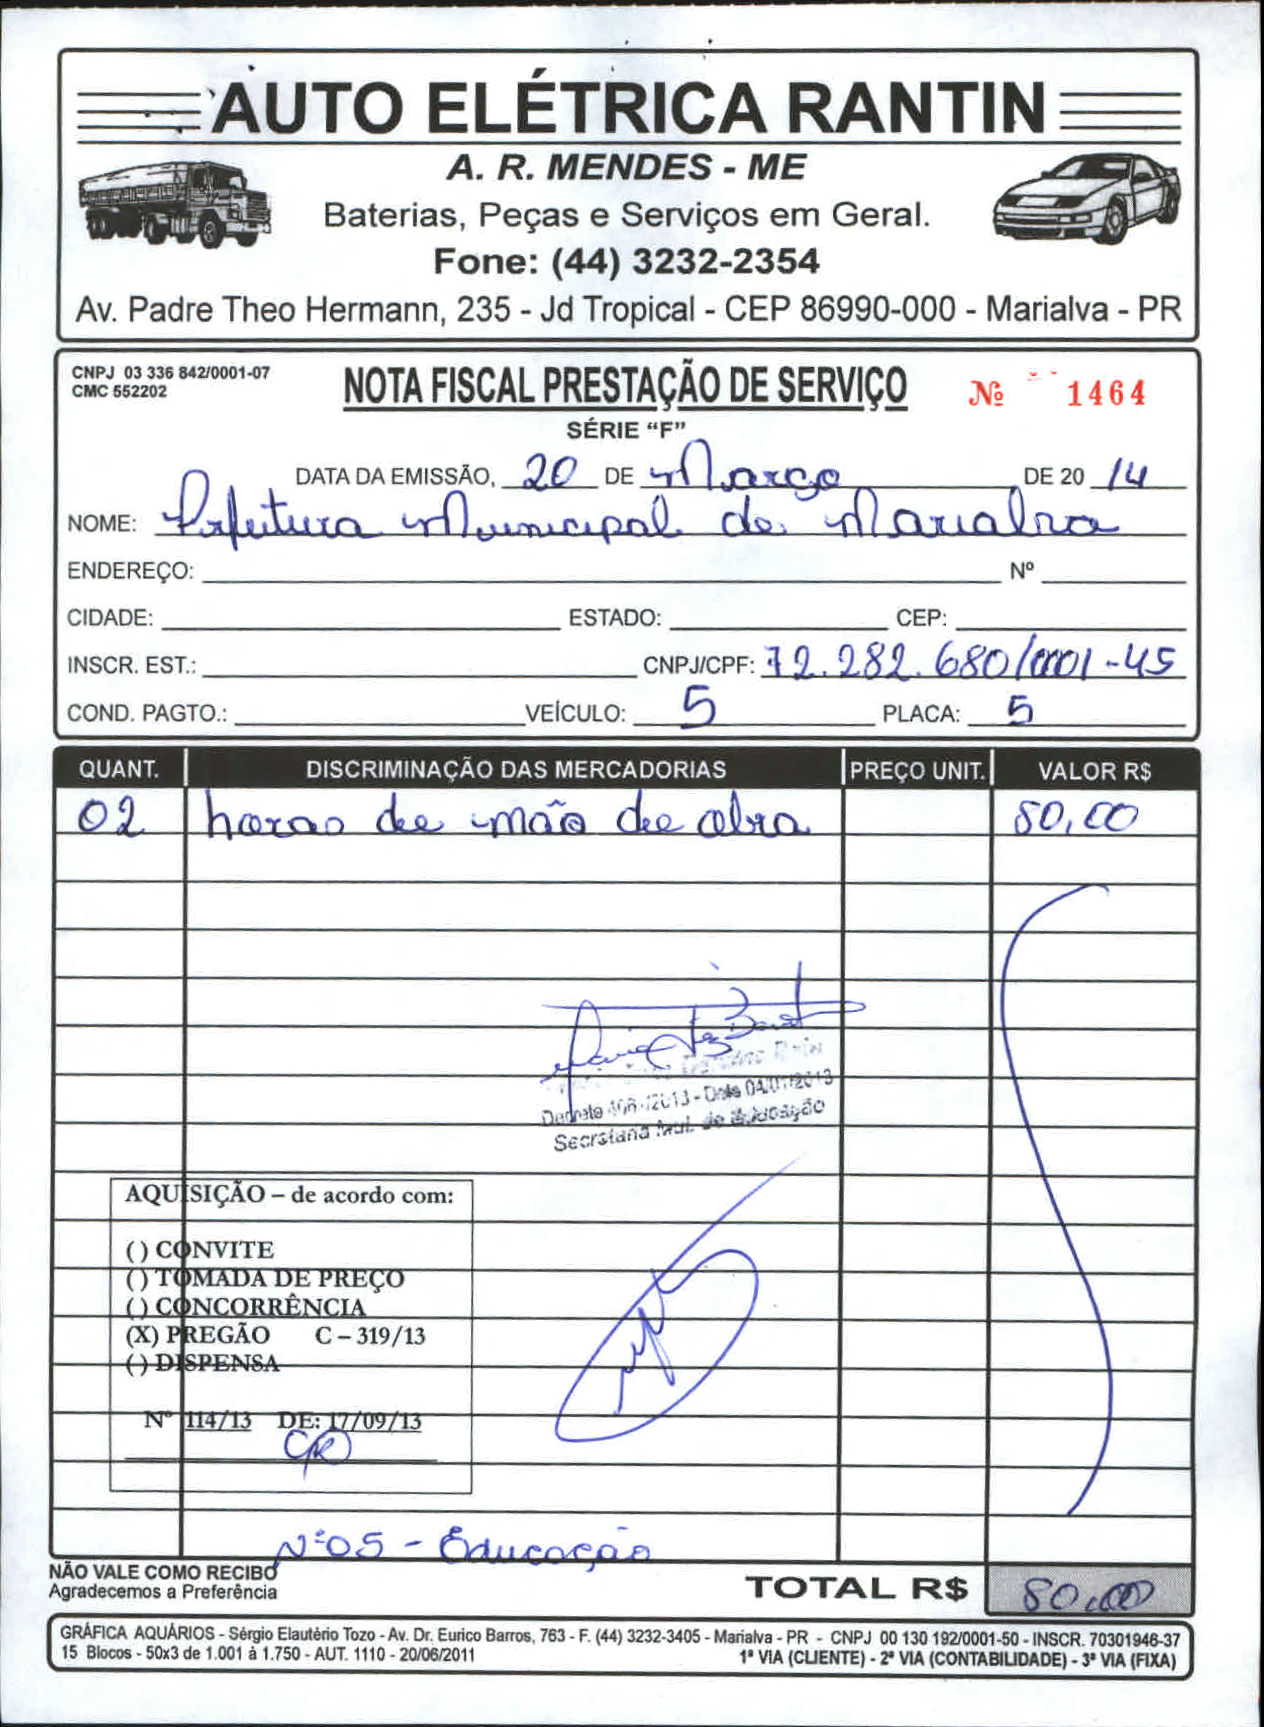 AUTO ELÉTRICA RANTIN
A. R. MENDES - ME
Baterias, Peças e Serviços em Geral.
Fone: (44) 3232-2354
Av. Padre Theo Hermann, 235 - Jd Tropical - CEP 86990-000 - Marialva - PR
CNPJ 03 336 842/0001-07
CMC 552202
NOTA FISCAL PRESTAÇÃO DE SERVIÇO
Nº 1464
SÉRIE “F”
DATA DA EMISSÃO, 20 DE Março DE 20 14
NOME: Prefeitura Municipal de Marialva
ENDEREÇO: Nº
CIDADE: ESTADO: CEP:
INSCR. EST.: CNPJ/CPF: 72.282.680/0001-45
COND. PAGTO.: VEÍCULO: 5 PLACA: 5
QUANT. DISCRIMINAÇÃO DAS MERCADORIAS PREÇO UNIT. VALOR R$
02 horas de mão de obra 80,00
Decreto /2013 - Data 04/01/2013
Secretaria Mul. de Educação
AQUISIÇÃO – de acordo com:
( ) CONVITE
( ) TOMADA DE PREÇO
( ) CONCORRÊNCIA
(X) PREGÃO C – 319/13
( ) DISPENSA
Nº 114/13 DE: 17/09/13
Nº 05 - Educação
NÃO VALE COMO RECIBO
Agradecemos a Preferência
TOTAL R$ 80,00
GRÁFICA AQUÁRIOS - Sérgio Elautério Tozo - Av. Dr. Eurico Barros, 763 - F. (44) 3232-3405 - Marialva - PR - CNPJ 00 130 192/0001-50 - INSCR. 70301946-37
15 Blocos - 50x3 de 1.001 à 1.750 - AUT. 1110 - 20/06/2011
1ª VIA (CLIENTE) - 2ª VIA (CONTABILIDADE) - 3ª VIA (FIXA)